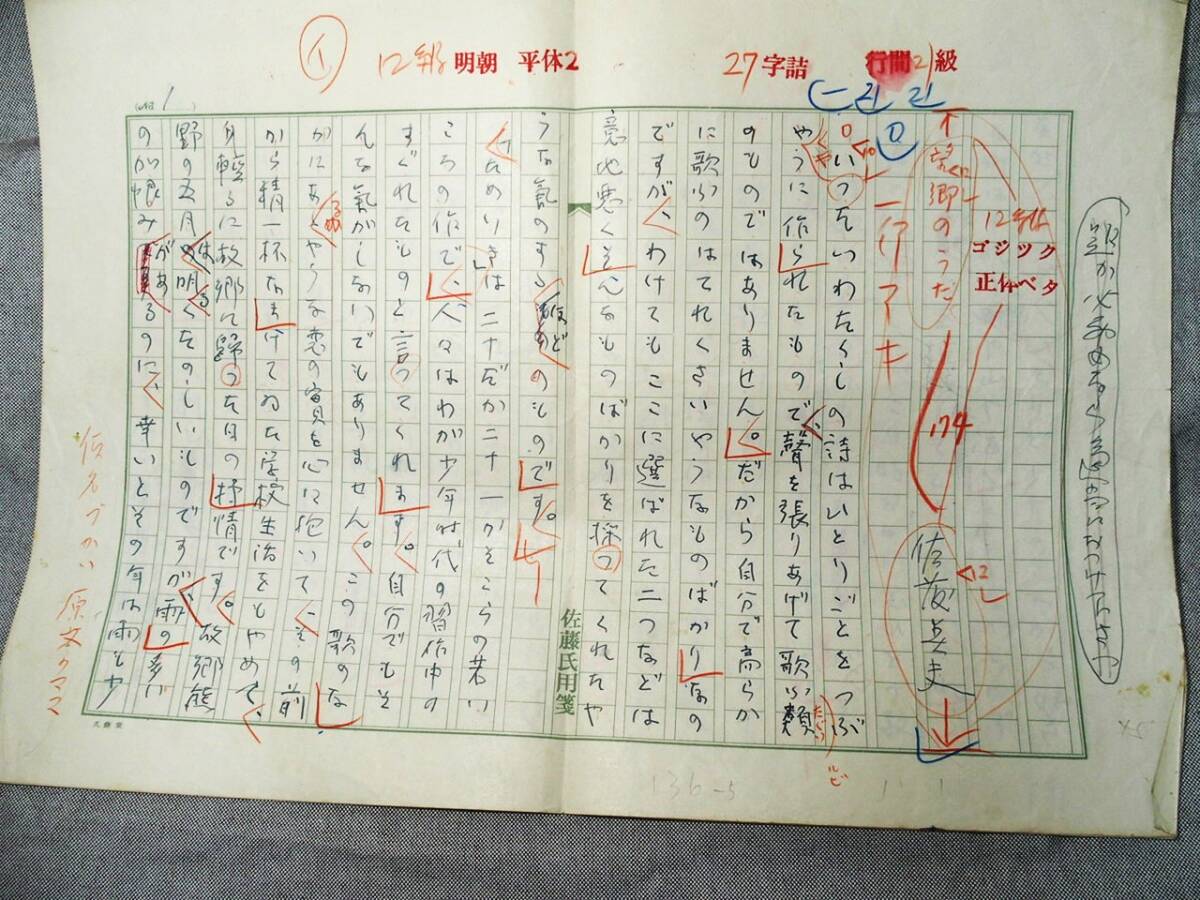 イ
12級 明朝 平体2
27字詰
行間21級
題が必要なら
12級
ゴシック
正体ベタ
望郷のうた
174
佐藤春夫
12
一行アキ
いつたいわたくしの詩はひとりごとをつぶ
やくやうに作られたもので、聲を張りあげて歌ふ類
たぐひ
ルビ
のものではありません。だから自分で高らか
に歌ふのはてれくさいやうなものばかりなの
ですが、わけてもここに選ばれた二つなどは
意地悪くそんなものばかりを採つてくれたや
うな氣のするほどのものです。
佐藤氏用箋
ためいきは二十だか二十一かそこらの若い
ころの作で、人々はわが少年時代の習作中の
すぐれたものと言つてくれます。自分でもそ
んな氣がしないでもありません。この歌のな
かにあるやうな恋の實を心に抱いて、その前
から精一杯なまけてゐた学校生活をもやめて、
身輕るに故郷に歸つた日の抒情です。故郷熊
野の五月は明るくたのしいものですが、雨の多い
のが恨みがあるのに、幸いとその年は雨も少
仮名づかい 原文のママ
文藝堂
136-5